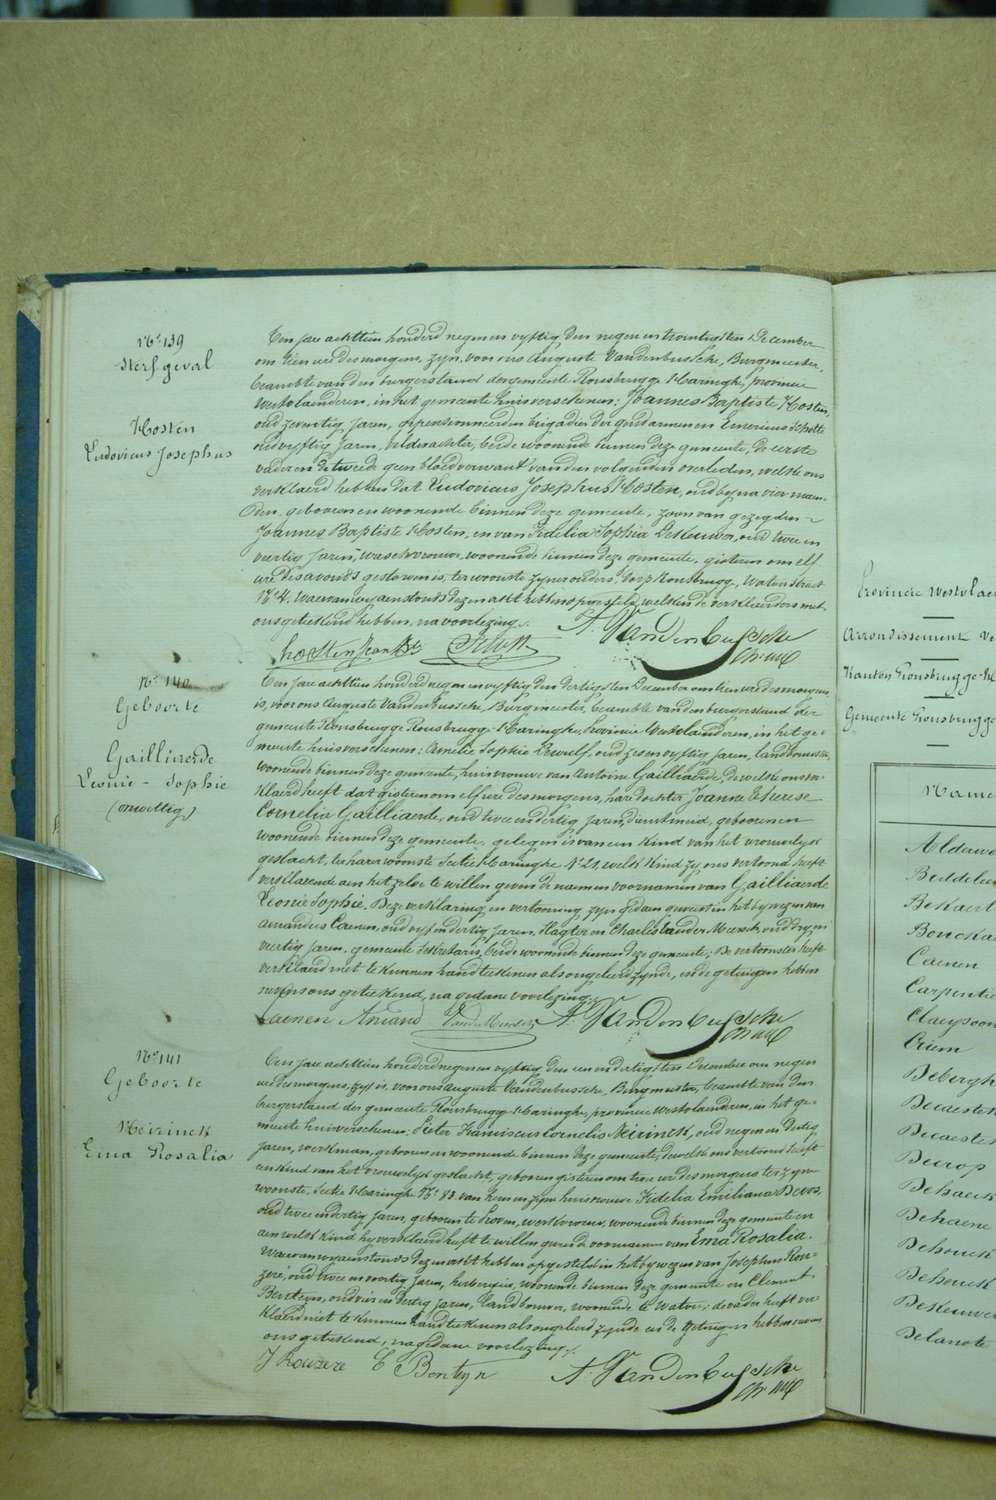 N° 139
Sterfgeval
Hosten
Ludovicus Josephus
Ten jare achttien honderd negen en vyftig den negen en twintigsten December
om tien ure des morgens, zyn, voor ons Auguste Vandenbussche, Burgmeester,
beambte van den burgerstand der gemeente Rousbrugge-Haringhe, provincie
Westvlaanderen, in het gemeente huis verschenen: Joannes Baptiste Hosten,
oud zeventig jaren, gepensionneerden brigadier der gendarmen en Emerinus Schotte
oud vyftig jaren, veldwachter, beide woonende binnen deze gemeente, de eerste
vader en de tweede geen bloedverwant van den volgenden overleden, welke ons
verklaerd hebben dat Ludovicus Josephus Hosten, oud byna vier maen-
den, geboren en woonende binnen deze gemeente, zoon van gezegden
Joannes Baptiste Hosten, en van Fidelia Sophia Dekeuwer, oud twee en
veertig jaren, waschvrouw, woonende binnen deze gemeente, gisteren om elf
ure des avonds gestorven is, ter woonste zyner ouders dorp Rousbrugge, Waterstraet
N° 4. Waervan wy aenstonds dezen akt hebben opgesteld, welken de verklaerders met
ons geteekend hebben, na voorlezing.
hosten Jean Bte Schotte A. Vandenbussche
N° 140
Geboorte
Gailliaerde
Leonie-Sophie
(onwettig)
Ten jare achttien honderd negen en vyftig den dertigsten December om tien ure des morgens,
is, voor ons Auguste Vandenbussche, Burgmeester, beambte van den burgerstand der
gemeente Rousbrugge Rousbrugge-Haringhe, Provincie Westvlaanderen, in het ge-
meente huis verschenen: Amelie Sophie Dewulf, oud zes en vyftig jaren, landbouwster,
woonende binnen deze gemeente, huisvrouwe van Antoine Gailliaerde, dewelke ons ver-
klaerd heeft dat gisteren om elf ure des morgens, hare dochter Joanne Therese
Cornelia Gailliaerde, oud twee en dertig jaren, dienstmeid, geboren en
woonende binnen deze gemeente, gelegen is van een kind van het vrouwelyk
geslacht, ter harer woonste Sectie Haringhe N° 21, welk kind zy ons vertoond heeft
verklarende aen het zelve te willen geven de namen en voornamen van Gailliaerde
Leonie Sophie. Deze verklaring en vertooning zyn gedaen geweest in het bywezen van
Amandus Caenen, oud vyf en dertig jaren, slagter en Charles Vander Meersch, oud dry en
veertig jaren, gemeente Sekretaris, beide woonende binnen deze gemeente; de vertoonster heeft
verklaerd niet te kunnen handteekenen als ongeleerd zynde, en de getuigen hebben
nevens ons geteekend, na gedane voorlezing.
Caenen Amand VanderMeersch A. Vandenbussche
N° 141
Geboorte
Meirinck
Ema Rosalia
Ten jare achttien honderd negen en vyftig den een en dertigsten December om negen
ure des morgens, zyt is, voor ons Auguste Vandenbussche, Burgmeester, beambte van den
burgerstand der gemeente Rousbrugge-Haringhe, provincie Westvlaenderen, in het ge-
meente huis verschenen: Pieter Franciscus Cornelis Meirinck, oud negen en dertig
jaren, werkman, geboren en woonende binnen deze gemeente, dewelke ons vertoond heeft
een kind van het vrouwelyk geslacht, geboren gisteren om twee ure des morgens ter zyner
woonste, Sectie Haringhe N° 83 van hem en zyne huisvrouwe Fidelia Emiliana Devos,
oud twee en dertig jaren, geboren te Loven, werkvrouw, woonende binnen deze gemeente en
aen welk kind hy verklaerd heeft te willen geven de voornamen van Ema Rosalia.
Waervan wy aenstonds dezen akt hebben opgesteld in het bywezen van Josephus Rou-
zeré, oud twee en veertig jaren, herbergier, woonende binnen deze gemeente en Clement
Bonteyn, oud vier en dertig jaren, landbouwer, woonende te Watou; de vader heeft ver-
klaerd niet te kunnen handteekenen als ongeleerd zynde en de getuigen hebben nevens
ons geteekend, na gedane voorlezing.
J Rouzere C Bonteyn A. Vandenbussche
Provincie Westvlaen
Arrondissement
Kanton Rousbrugge-H
Gemeente Rousbrugge
Namen
Aldewe
Beddelee
Bekaert
Bouckae
Caenen
Carpentie
Claeysoon
Criem
Deberg
Decaester
Decaester
Decrop
Dehaeck
Dehaene
Dehouck
Dehouck
Dekeuwer
Delanote